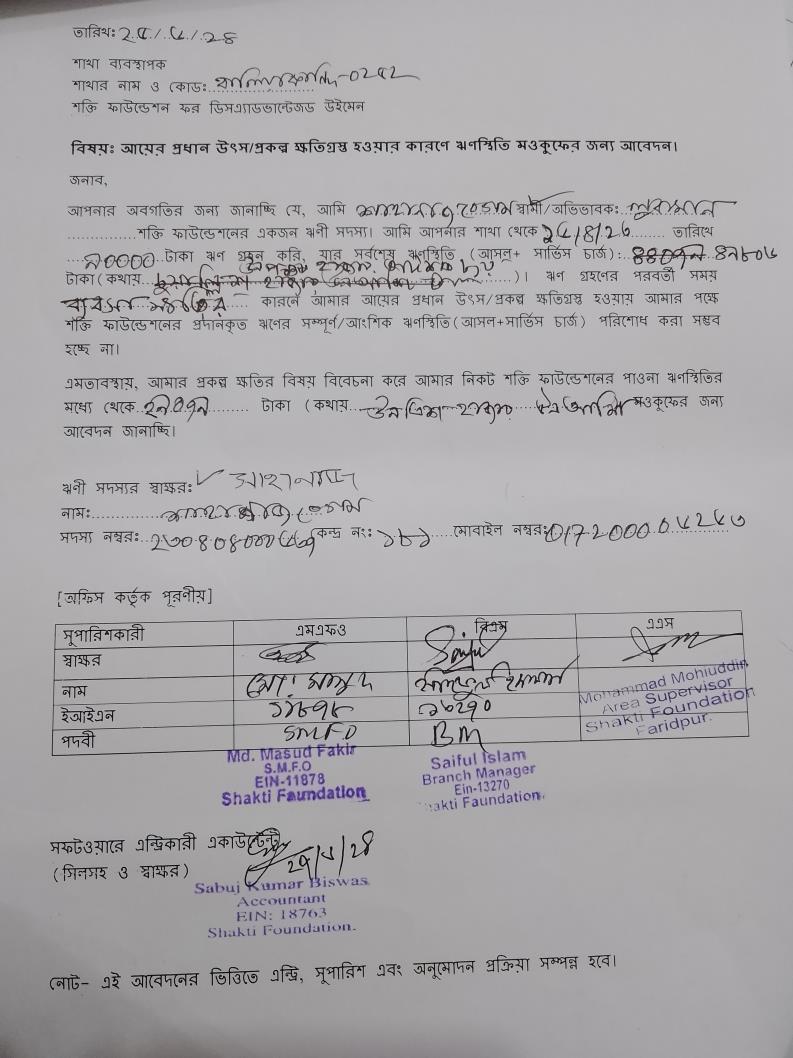 তারিখঃ
শাখা ব্যবস্থাপক
শাখার নাম ও কোডঃ -0252
শক্তি ফাউন্ডেশন ফর ডিসএ্যাডভান্টেজড উইমেন
বিষয়ঃ আয়ের প্রধান উৎস/প্রকল্প ক্ষতিগ্রস্থ হওয়ার কারণে ঋণস্থিতি মওকুফের জন্য আবেদন।
জনাব,
আপনার অবগতির জন্য জানাচ্ছি যে, আমি বেগম স্বামী/অভিভাবকঃ
শক্তি ফাউন্ডেশনের একজন ঋনী সদস্য। আমি আপনার শাখা থেকে তারিখে
৯০০০০ টাকা ঋণ গ্রহন করি, যার সর্বশেষ ঋণস্থিতি (আসল+ সার্ভিস চার্জ)ঃ
টাকা (কথায় )। ঋণ গ্রহণের পরবর্তী সময়
ব্যবসা ক্ষতির কারনে আমার আয়ের প্রধান উৎস/প্রকল্প ক্ষতিগ্রস্থ হওয়ায় আমার পক্ষে
শক্তি ফাউন্ডেশনের প্রদানকৃত ঋণের সম্পূর্ণ/আংশিক ঋণস্থিতি (আসল+সার্ভিস চার্জ) পরিশোধ করা সম্ভব
হচ্ছে না।
এমতাবস্থায়, আমার প্রকল্প ক্ষতির বিষয় বিবেচনা করে আমার নিকট শক্তি ফাউন্ডেশনের পাওনা ঋণস্থিতির
মধ্যে থেকে টাকা (কথায় উনত্রিশ হাজার মওকুফের জন্য
আবেদন জানাচ্ছি।
ঋনী সদস্যের স্বাক্ষরঃ
নামঃ বেগম
সদস্য নম্বরঃ কেন্দ্র নংঃ ১৮১ মোবাইল নম্বরঃ
[অফিস কর্তৃক পূরনীয়]
সুপারিশকারী এমএফও বিএম এএস
স্বাক্ষর
নাম মোঃ মাসুদ সাইফুল ইসলাম
ইআইএন ১১৮৭৮ ১৩২৭০
পদবী SMFO BM
Mohammad Mohiuddin
Area Supervisor
Shakti Foundation
Faridpur.
Md. Masud Fakir
S.M.F.O
EIN-11878
Shakti Faundation
Saiful Islam
Branch Manager
Ein-13270
Shakti Faundation.
সফটওয়ারে এন্ট্রিকারী একাউন্টেন্ট
(সিলসহ ও স্বাক্ষর)
Sabuj Kumar Biswas
Accountant
EIN: 18763
Shakti Foundation.
নোট- এই আবেদনের ভিত্তিতে এন্ট্রি, সুপারিশ এবং অনুমোদন প্রক্রিয়া সম্পন্ন হবে।